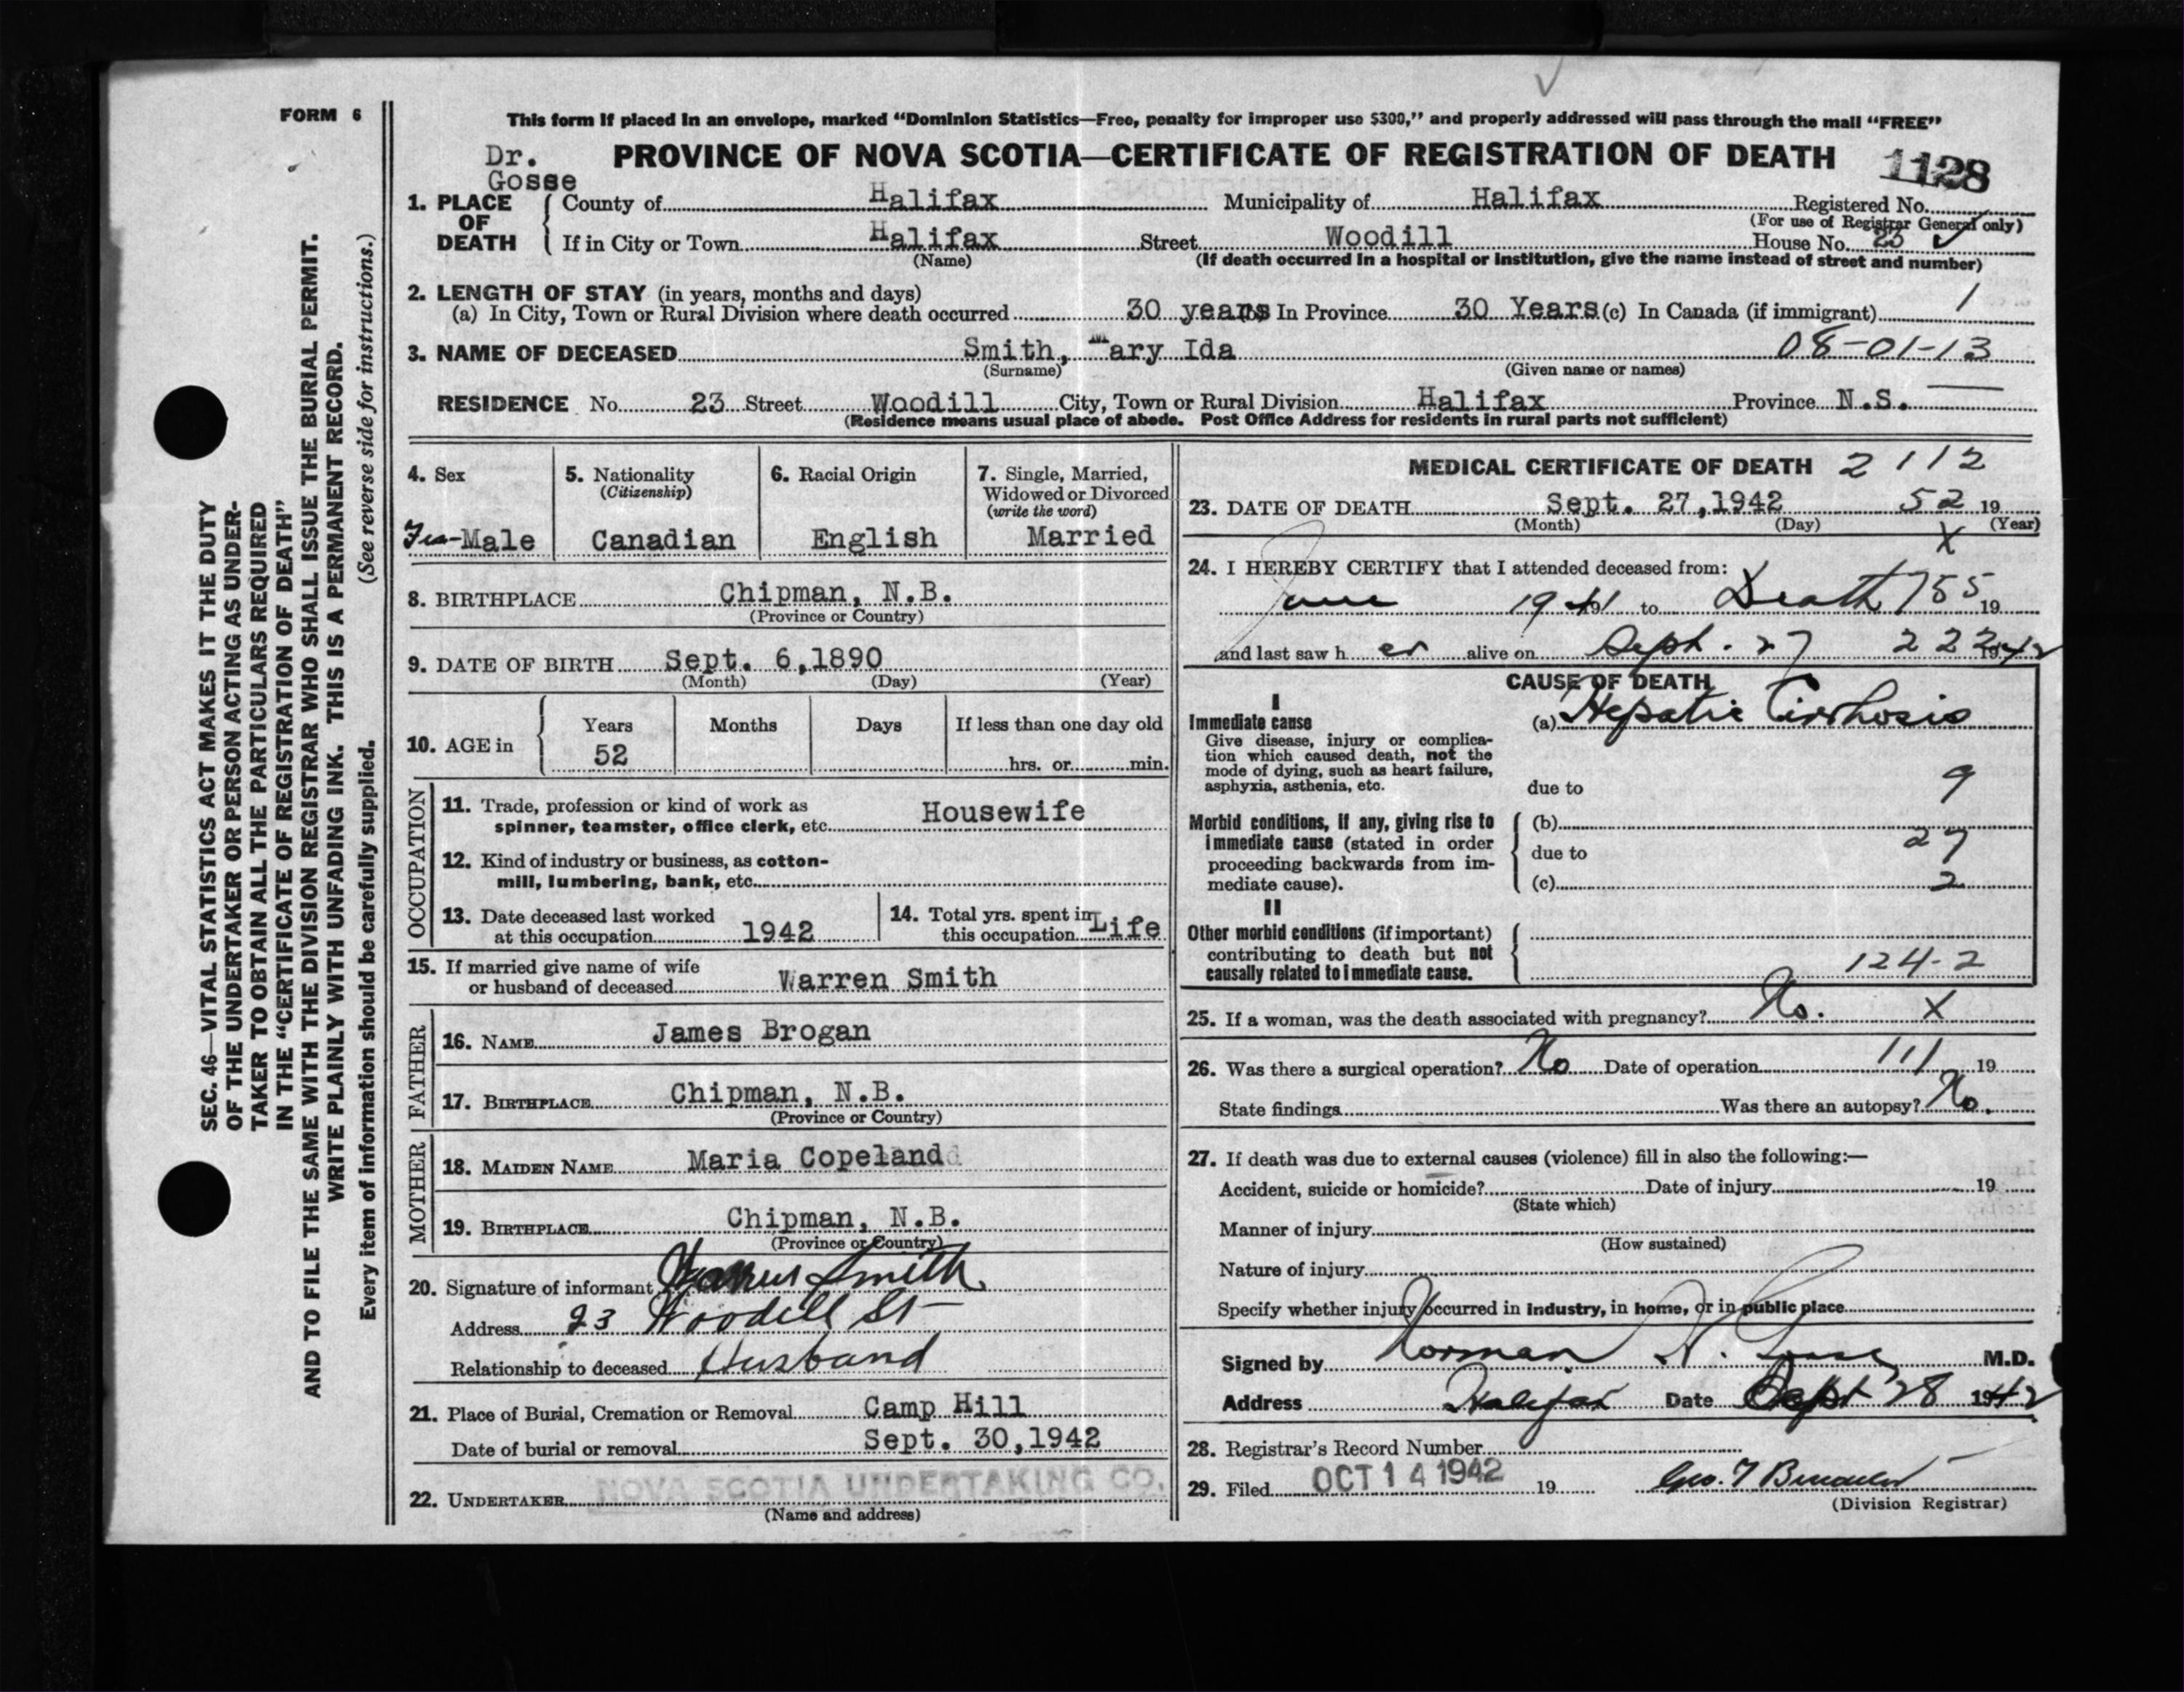 FORM 6
This form if placed in an envelope, marked “Dominion Statistics—Free, penalty for improper use $300,” and properly addressed will pass through the mail “FREE”
Dr. Gosse
PROVINCE OF NOVA SCOTIA—CERTIFICATE OF REGISTRATION OF DEATH 1128
1. PLACE OF DEATH { County of Halifax Municipality of Halifax Registered No.
(For use of Registrar General only)
If in City or Town Halifax Street Woodill House No. 23
(Name) (If death occurred in a hospital or institution, give the name instead of street and number)
2. LENGTH OF STAY (in years, months and days)
(a) In City, Town or Rural Division where death occurred 30 years In Province 30 Years (c) In Canada (if immigrant) 1
3. NAME OF DECEASED Smith, Mary Ida 08-01-13
(Surname) (Given name or names)
RESIDENCE No. 23 Street Woodill City, Town or Rural Division Halifax Province N.S.
(Residence means usual place of abode. Post Office Address for residents in rural parts not sufficient)
4. Sex
Fe-Male
5. Nationality
(Citizenship)
Canadian
6. Racial Origin
English
7. Single, Married,
Widowed or Divorced
(write the word)
Married
8. BIRTHPLACE Chipman, N.B.
(Province or Country)
9. DATE OF BIRTH Sept. 6,1890
(Month) (Day) (Year)
10. AGE in { Years Months Days If less than one day old
52 hrs. or min.
OCCUPATION
11. Trade, profession or kind of work as
spinner, teamster, office clerk, etc. Housewife
12. Kind of industry or business, as cotton-
mill, lumbering, bank, etc.
13. Date deceased last worked
at this occupation 1942
14. Total yrs. spent in
this occupation Life
15. If married give name of wife
or husband of deceased Warren Smith
FATHER
16. NAME James Brogan
17. BIRTHPLACE Chipman, N.B.
(Province or Country)
MOTHER
18. MAIDEN NAME Maria Copeland
19. BIRTHPLACE Chipman, N.B.
(Province or Country)
20. Signature of informant Smith
Address 23 Woodill St
Relationship to deceased Husband
21. Place of Burial, Cremation or Removal Camp Hill
Date of burial or removal Sept. 30,1942
22. UNDERTAKER NOVA SCOTIA UNDERTAKING CO.
(Name and address)
MEDICAL CERTIFICATE OF DEATH 2 112
23. DATE OF DEATH Sept. 27,1942 52 19
(Month) (Day) (Year)
X
24. I HEREBY CERTIFY that I attended deceased from:
June 1941 to Death 755 19
and last saw her alive on Sept. 27 222 1942
CAUSE OF DEATH
I
Immediate cause (a) Hepatic Cirrhosis
Give disease, injury or complica-
tion which caused death, not the
mode of dying, such as heart failure,
asphyxia, asthenia, etc. due to 9
Morbid conditions, if any, giving rise to
immediate cause (stated in order
proceeding backwards from im-
mediate cause).
(b)
due to 27
(c) 2
II
Other morbid conditions (if important)
contributing to death but not
causally related to immediate cause. 124-2
25. If a woman, was the death associated with pregnancy? No. X
26. Was there a surgical operation? No Date of operation 111 19
State findings Was there an autopsy? No.
27. If death was due to external causes (violence) fill in also the following:—
Accident, suicide or homicide? Date of injury 19
(State which)
Manner of injury
(How sustained)
Nature of injury
Specify whether injury occurred in industry, in home, or in public place
Signed by Norman H. Gosse M.D.
Address Halifax Date Sept 28 1942
28. Registrar's Record Number
29. Filed OCT 14 1942 19
(Division Registrar)
SEC. 46—VITAL STATISTICS ACT MAKES IT THE DUTY
OF THE UNDERTAKER OR PERSON ACTING AS UNDER-
TAKER TO OBTAIN ALL THE PARTICULARS REQUIRED
IN THE “CERTIFICATE OF REGISTRATION OF DEATH”
AND TO FILE THE SAME WITH THE DIVISION REGISTRAR WHO SHALL ISSUE THE BURIAL PERMIT.
WRITE PLAINLY WITH UNFADING INK. THIS IS A PERMANENT RECORD.
Every item of information should be carefully supplied. (See reverse side for instructions.)